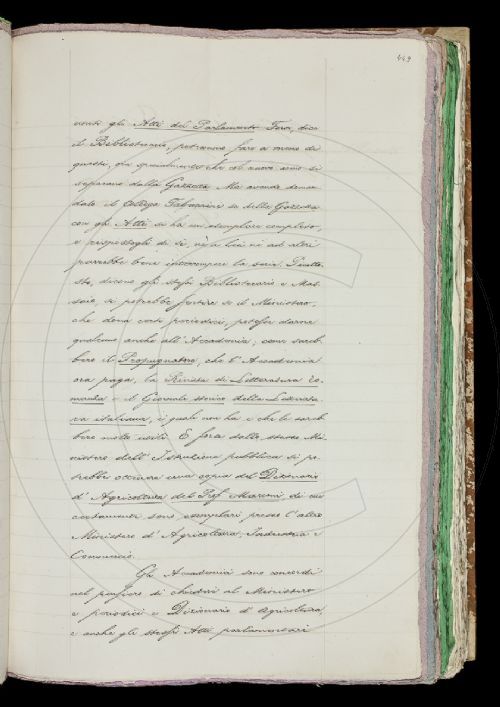 449
venti gli Atti del Parlamento. Forse, dice
il Bibliotecario, potremmo fare a meno di
questi, ora specialmente che col nuovo anno si
separano dalla Gazzetta. Ma avendo doman
dato il collega Tabarrini se della Gazzetta
con gli Atti si ha un esemplare completo,
e rispostogli di sì, nè a lui nè ad altri
parrebbe bene interrompere la serie. Piutto-
sto, dicono gli stessi Bibliotecario e Mas-
saio, si potrebbe sentire se il Ministero,
che dona varî periodici, potesse darne
qualcuno anche all'Accademia, come sareb-
bero il Propugnatore, che l'Accademia
ora paga, la Rivista di Letteratura ro-
manza e il Giornale storico della Letteratu-
ra italiana, i quali non ha e che le sareb-
bero molto utili. E forse dallo stesso Mi-
nistero dell'Istruzione pubblica si po-
trebbe ottenere una copia del Dizionario
d'Agricoltura del Prof.
di cui
certamente sono esemplari presso l'altro
Ministero d'Agricoltura, Industria e
Commercio.
Gli Accademici sono concordi
nel pensiero di chiedere al Ministero
e periodici e Dizionario d'Agricoltura
e anche gli stessi Atti parlamentari